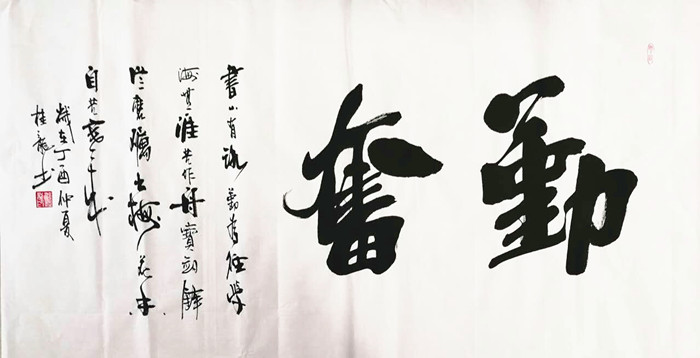 勤奮
書山有路勤为徑學
海無涯苦作舟寶劍鋒
從磨礪出梅花香
自苦寒
歲在丁酉仲夏
桂龍书